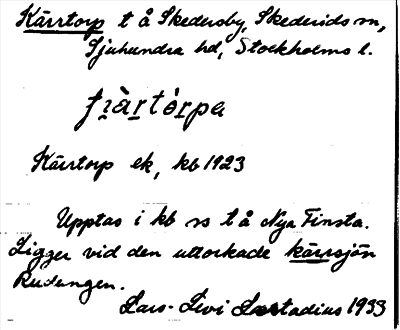 Kärrtorp t å Skedersby, Skederids sn,
Sjuhundra hd, Stockholms l.
Kärrtorp ek, kb 1923
Upptas i kb ss t å Nya Finsta.
Ligger vid den uttorkade kärrsjön
Rudungen.
Lars-Levi Læstadius 1933